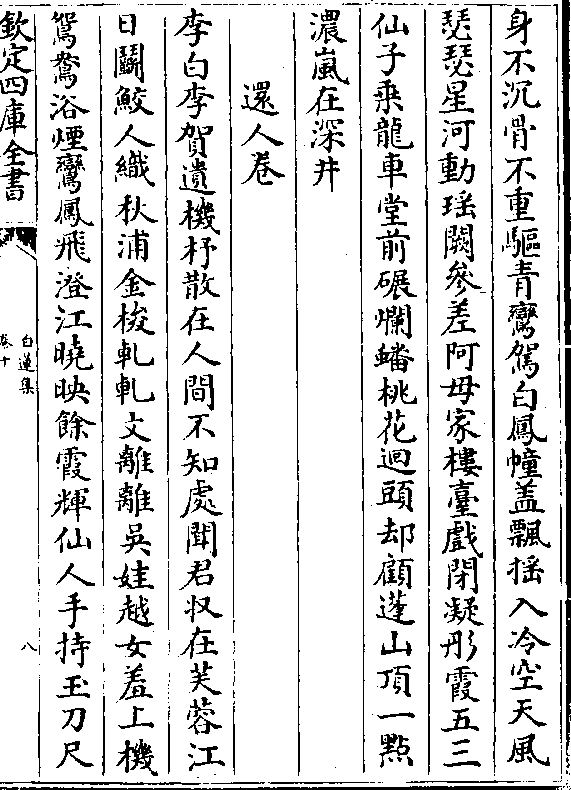 身不沉骨不重驅青鸞駕白鳳幢盖飄揺入冷空天風
瑟瑟星河動瑶闕參差阿母家樓臺戲閉凝彤霞五三
仙子乘龍車堂前碾爛蟠桃花迴頭却顧蓬山頂一點
濃嵐在深井
還人卷
李白李賀遺機杼散在人間不知處聞君收在芙蓉江
日鬭鮫人織秋浦金梭軋軋文離離吳娃越女羞上機
鴛鴦浴煙鸞鳳飛澄江曉映餘霞輝仙人手持玉刀尺
欽定四庫全書
白蓮集
卷十
八